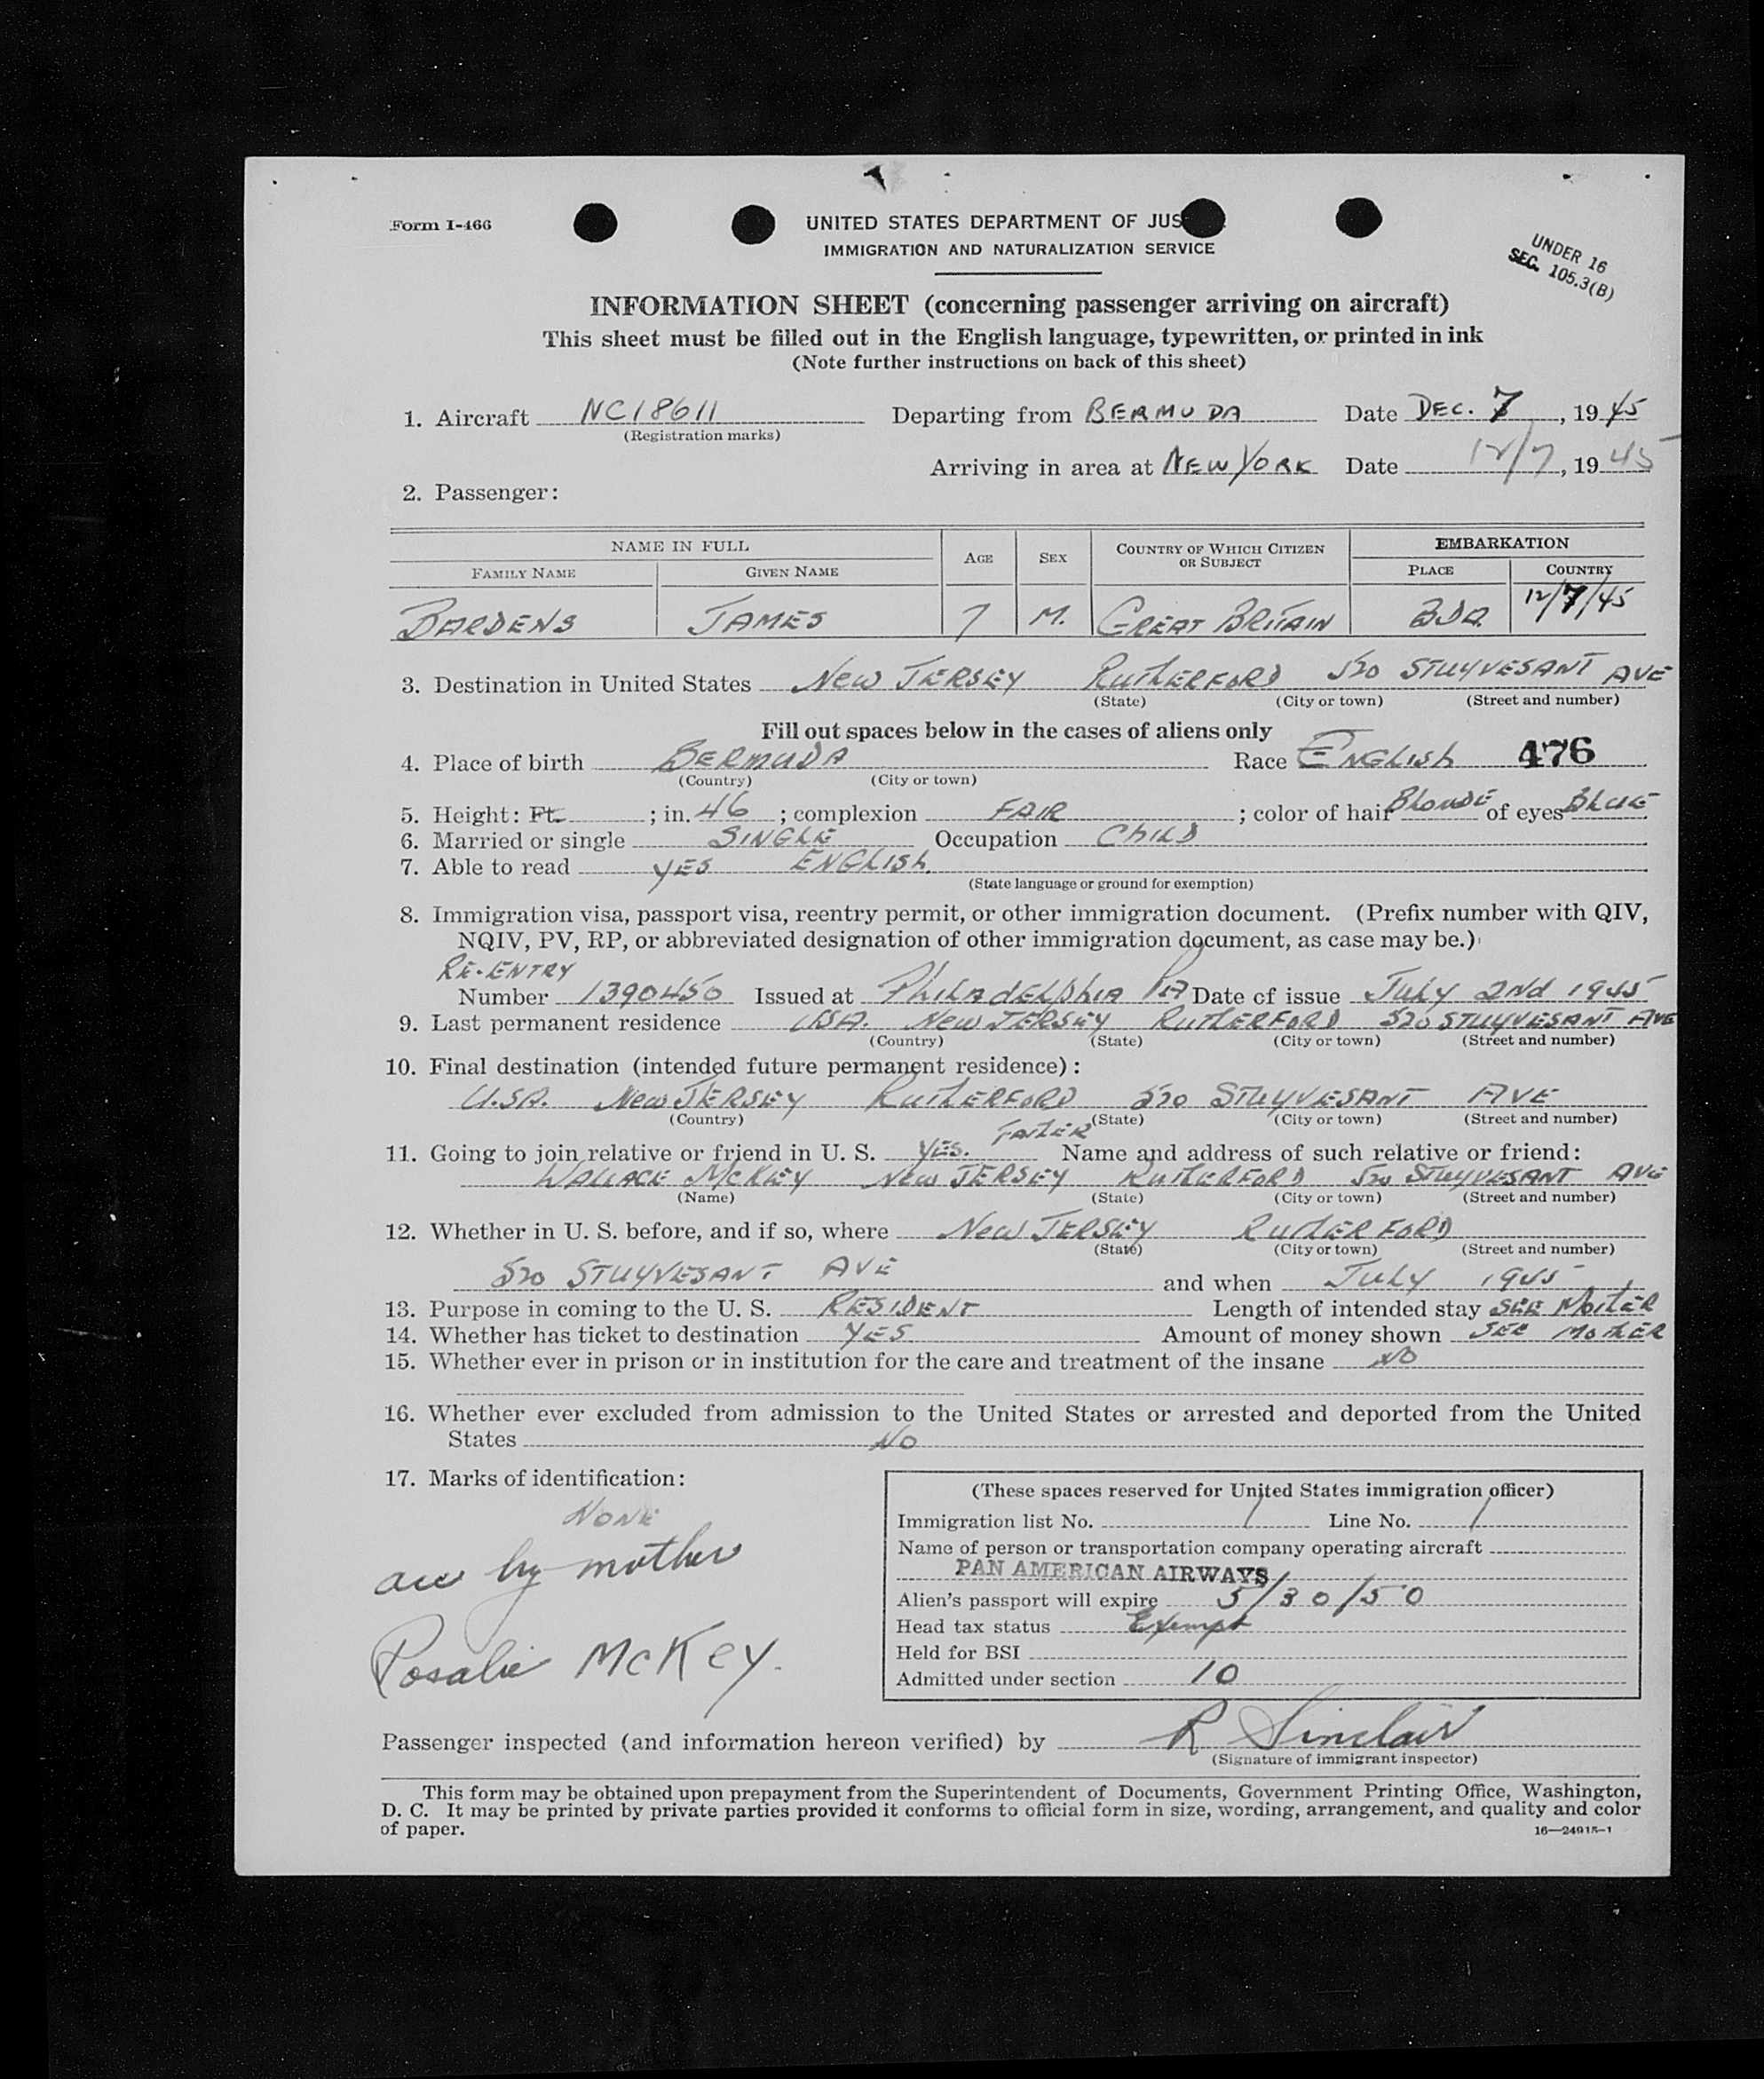 Form I-466
UNITED STATES DEPARTMENT OF JUS
IMMIGRATION AND NATURALIZATION SERVICE
UNDER 16
SEC. 105.3(B)
INFORMATION SHEET (concerning passenger arriving on aircraft)
This sheet must be filled out in the English language, typewritten, or printed in ink
(Note further instructions on back of this sheet)
1. Aircraft NC18611 Departing from BERMUDA Date DEC. 7, 1945
(Registration marks)
Arriving in area at NEW YORK Date 12/7, 1945
2. Passenger:
NAME IN FULL AGE SEX COUNTRY OF WHICH CITIZEN OR SUBJECT EMBARKATION
FAMILY NAME GIVEN NAME PLACE COUNTRY
BARDENS JAMES 7 M. GREAT BRITAIN BDA. 12/7/45
3. Destination in United States NEW JERSEY RUTHERFORD 520 STUYVESANT AVE
(State) (City or town) (Street and number)
Fill out spaces below in the cases of aliens only
4. Place of birth BERMUDA Race ENGLISH 476
(Country) (City or town)
5. Height: Ft. ; in. 46 ; complexion FAIR ; color of hair BLONDE of eyes BLUE
6. Married or single SINGLE Occupation CHILD
7. Able to read YES ENGLISH.
(State language or ground for exemption)
8. Immigration visa, passport visa, reentry permit, or other immigration document. (Prefix number with QIV,
NQIV, PV, RP, or abbreviated designation of other immigration document, as case may be.)
RE-ENTRY
Number 1390450 Issued at PHILADELPHIA PA Date of issue JULY 2ND 1945
9. Last permanent residence USA. NEW JERSEY RUTHERFORD 520 STUYVESANT AVE
(Country) (State) (City or town) (Street and number)
10. Final destination (intended future permanent residence):
U.SA. NEW JERSEY RUTHERFORD 520 STUYVESANT AVE
(Country) (State) (City or town) (Street and number)
FATHER
11. Going to join relative or friend in U. S. YES. Name and address of such relative or friend:
WALLACE MCKEY NEW JERSEY RUTHERFORD 520 STUYVESANT AVE
(Name) (State) (City or town) (Street and number)
12. Whether in U. S. before, and if so, where NEW JERSEY RUTHERFORD
(State) (City or town) (Street and number)
520 STUYVESANT AVE and when JULY 1945
13. Purpose in coming to the U. S. RESIDENT Length of intended stay SEE MOTHER
14. Whether has ticket to destination YES Amount of money shown SEE MOTHER
15. Whether ever in prison or in institution for the care and treatment of the insane NO
16. Whether ever excluded from admission to the United States or arrested and deported from the United
States NO
17. Marks of identification:
NONE
acc by mother
Rosalie McKey.
(These spaces reserved for United States immigration officer)
Immigration list No. 1 Line No. 1
Name of person or transportation company operating aircraft
PAN AMERICAN AIRWAYS
Alien's passport will expire 5/30/50
Head tax status Exempt
Held for BSI
Admitted under section 10
Passenger inspected (and information hereon verified) by R Sinclair
(Signature of immigrant inspector)
This form may be obtained upon prepayment from the Superintendent of Documents, Government Printing Office, Washington,
D. C. It may be printed by private parties provided it conforms to official form in size, wording, arrangement, and quality and color
of paper.
16—24915-1